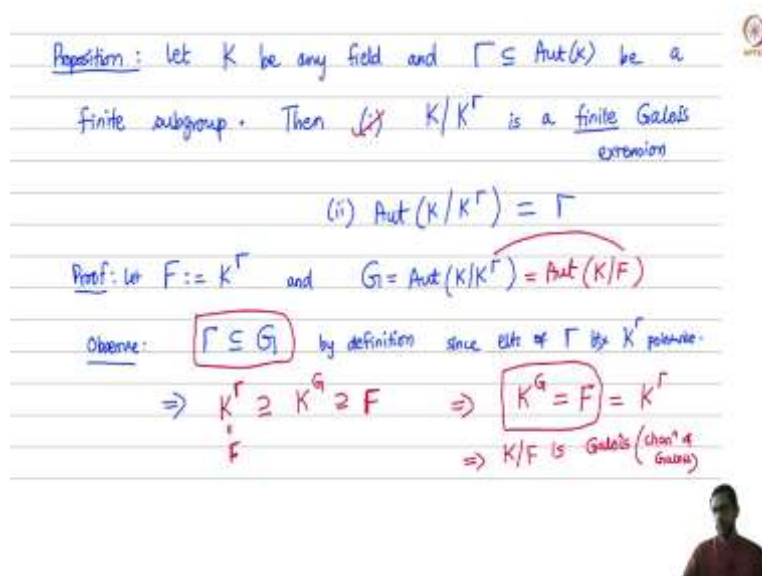 Proposition: Let K be any field and Γ ⊆ Aut(K) be a
finite subgroup. Then (i) K/K^Γ is a finite Galois
extension
(ii) Aut(K/K^Γ) = Γ
Proof: Let F := K^Γ and G = Aut(K/K^Γ) = Aut(K/F)
Observe: Γ ⊆ G by definition since elts of Γ fix K^Γ pointwise.
⇒ K^Γ ⊇ K^G ⊇ F ⇒ K^G = F = K^Γ
F ⇒ K/F is Galois (chanⁿ of
Galois)